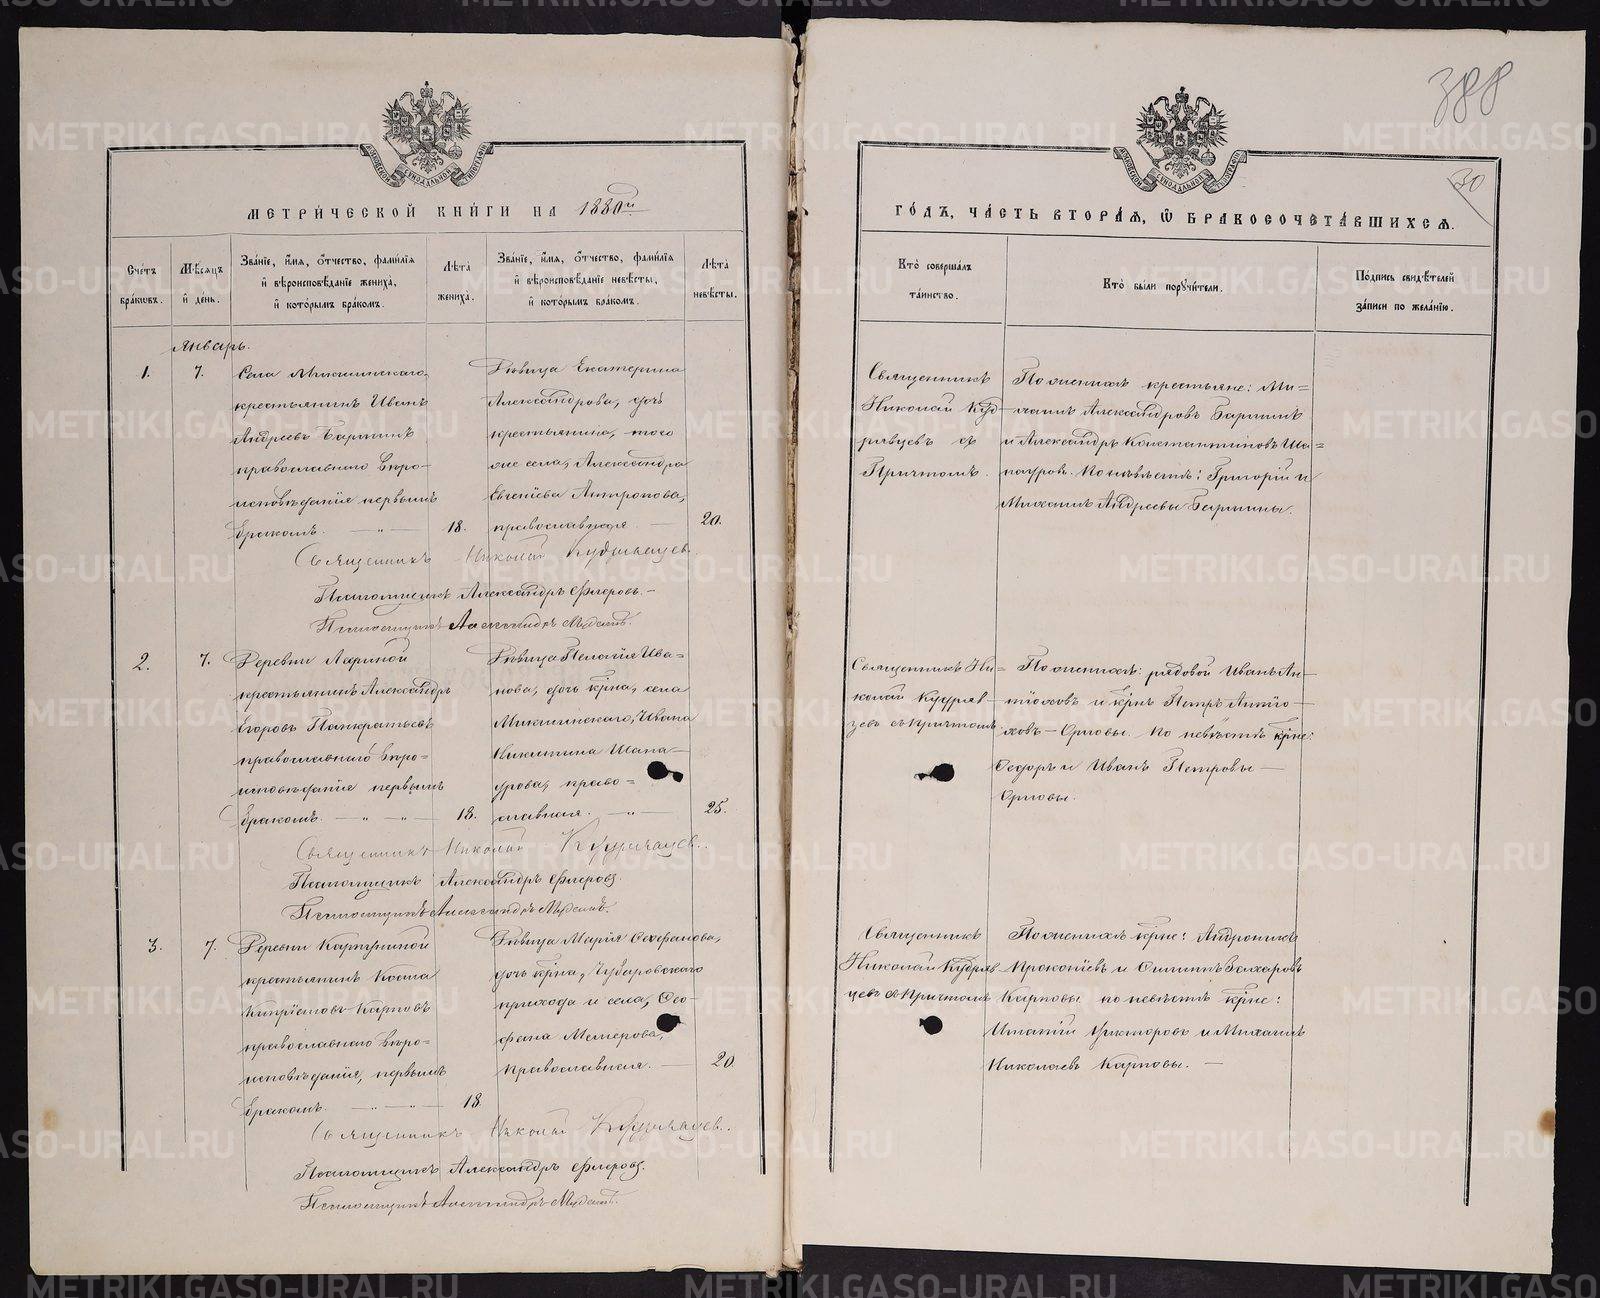 388
30
МЕТРИ́ЧЕСКОЙ КНИ́ГИ НА 1880й
ГО́ДЪ, ЧА́СТЬ ВТОРА́Я, Ѡ БРАКОСОЧЕТА́ВШИХСЯ.
Сче́тъ бра́ковъ.
Мѣ́сяцъ и де́нь.
Зва́нiе, и́мя, о́тчество, фами́лiя и вѣроисповѣ́данiе жениха̀, и кото́рымъ бра́комъ.
Лѣ́та жениха̀.
Зва́нiе, и́мя, о́тчество, фами́лiя и вѣроисповѣ́данiе невѣ́сты, и кото́рымъ бра́комъ.
Лѣ́та невѣ́сты.
Кто̀ соверша́лъ та́инство.
Кто̀ бы́ли поручи́тели.
По́дпись свидѣ́телей за́писи по жела́нiю.
Январь.
1.
7.
Села Микшинскаго,
крестьянинъ Иванъ
Андреевъ
православнаго вѣро-
исповѣданiя первымъ
бракомъ.
18.
Дѣвица Екатерина
Александрова, дочь
крестьянина, того
же села, Александра
Евгенiева Антропова,
православная
20.
Священникъ
Николай Куд-
рявцевъ съ
Причтомъ.
По женихѣ крестьяне: Ми-
хаилъ Александровъ
и Александръ Константиновъ Ша-
пауровъ. По невѣстѣ: Григорiй и
Михаилъ Андреевы
Священникъ Николай Кудрявцевъ.
Александръ
Александръ
2.
7.
Деревни Лариной
крестьянинъ Александръ
Егоровъ Панкратьевъ
православнаго вѣро-
исповѣданiя первымъ
бракомъ.
18.
Дѣвица Пелагiя Ива-
нова, дочь крна, села
Микшинскаго, Ивана
Никитина Шапа-
урова, право-
славная.
25.
Священникъ Ни-
колай Кудряв-
цевъ съ Причтомъ
По женихѣ: рядовой Иванъ Ан-
тiоховъ и крнъ Петръ Антiо-
ховъ - Орловы. По невѣстѣ крне:
Ѳедоръ и Иванъ Петровы
Орловы.
Священникъ Николай Кудрявцевъ.
Александръ
Александръ
3.
7.
Деревни
крестьянинъ Косма
Карповъ
православнаго вѣро-
исповѣданiя, первымъ
бракомъ.
18
Дѣвица Марiя Стефанова,
дочь крна, Чубаровскаго
прихода и села,
православная.
20.
Священникъ
Николай Кудряв-
цевъ съ Причтомъ
По женихѣ крне: Андроникъ
Прокопiевъ и Филиппъ Захаровъ
Карповы по невѣстѣ крне:
Игнатiй Викторовъ и Михаилъ
Николаевъ Карповы.
Священникъ Николай Кудрявцевъ.
Александръ
Александръ
METRIKI.GASO-URAL.RU